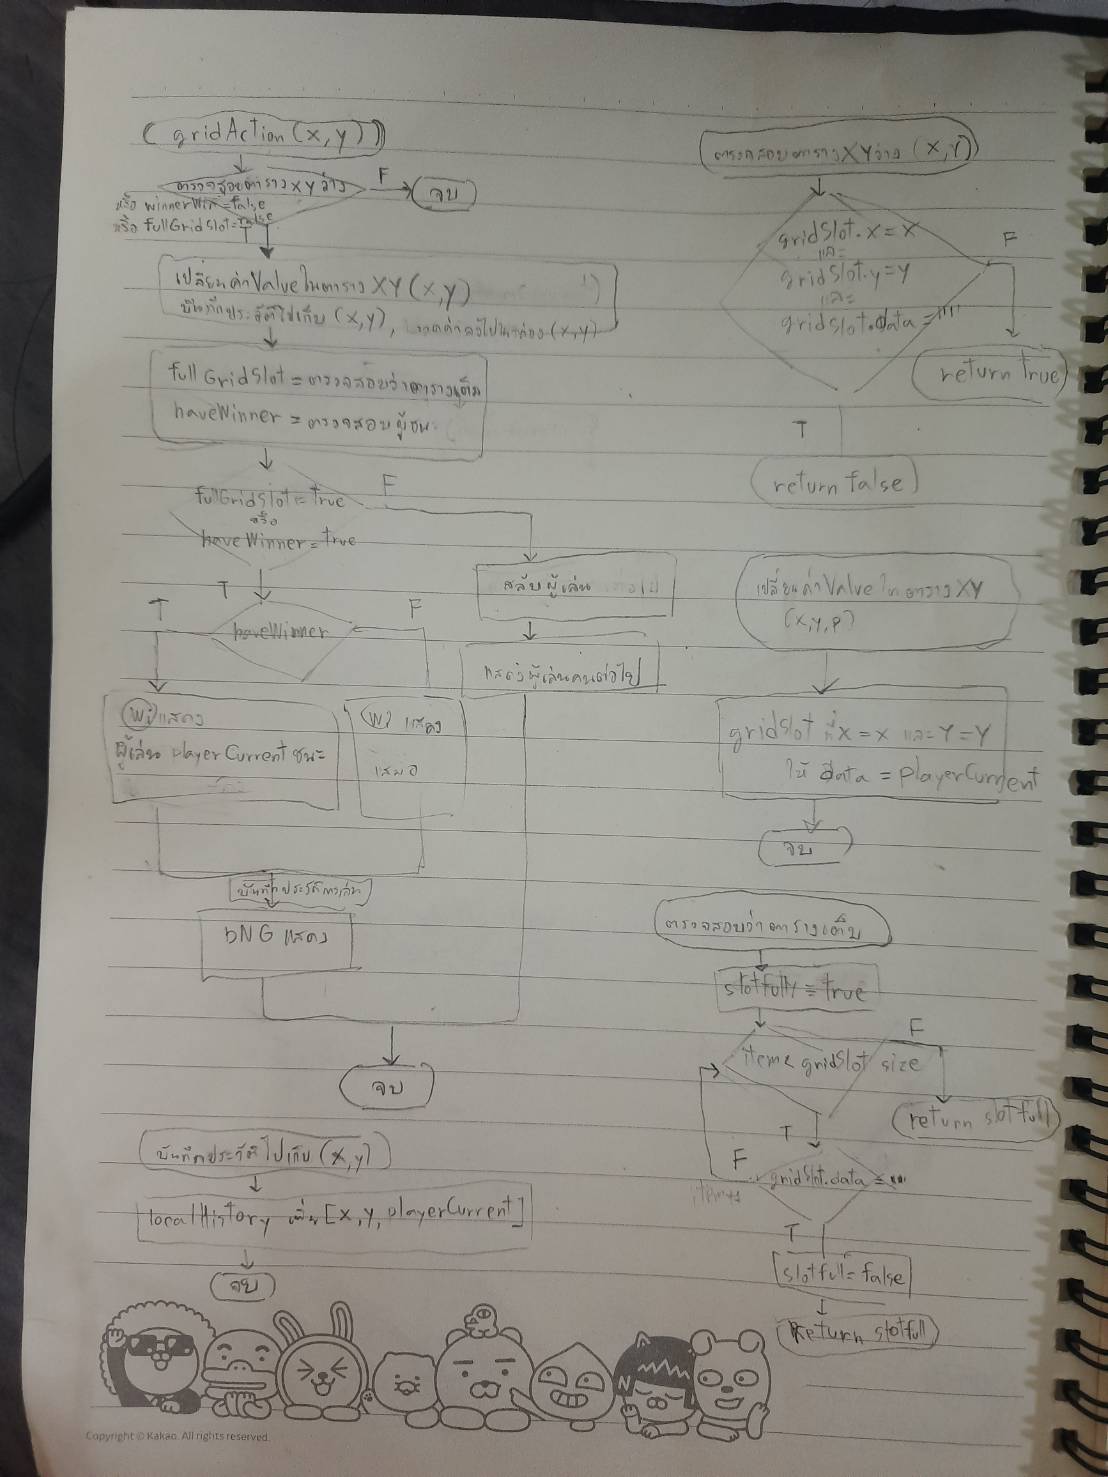 gridAction(x,y)
ตรวจสอบตารางXYว่าง
F
จบ
หรือ winnerWin=false
หรือ fullGridSlot=false
T
เปลี่ยนค่าValueในตารางXY(x,y)
บันทึกประวัติไปเก็บ(x,y), วาดค่าลงไปใน (x,y)
fullGridSlot=ตรวจสอบว่าตารางเต็ม
haveWinner=ตรวจสอบผู้ชนะ
fullGridSlot=true
หรือ
haveWinner=true
F
T
สลับผู้เล่น
แสดงผู้เล่นคนต่อไป
haveWinner
T
F
แสดง
ผู้เล่น playerCurrent ชนะ
แสดง
เสมอ
บันทึกประวัติการเล่น
bNG แสดง
จบ
บันทึกประวัติไปเก็บ(x,y)
localHistory เพิ่ม[x,y,playerCurrent]
จบ
ตรวจสอบตารางXYว่าง(x,y)
gridSlot.x=x
และ
gridSlot.y=y
และ
gridSlot.data=""
F
return true
T
return false
เปลี่ยนค่าValueในตารางXY
(x,y,p)
gridSlot ที่ x=x และ Y=Y
ให้ data=playerCurrent
จบ
ตรวจสอบว่าตารางเต็ม
slotfully=true
item<gridSlot size
F
return slotfull
T
gridSlot.data=""
F
item++
T
slotfull=false
Return slotfull
Copyright © Kakao. All rights reserved.